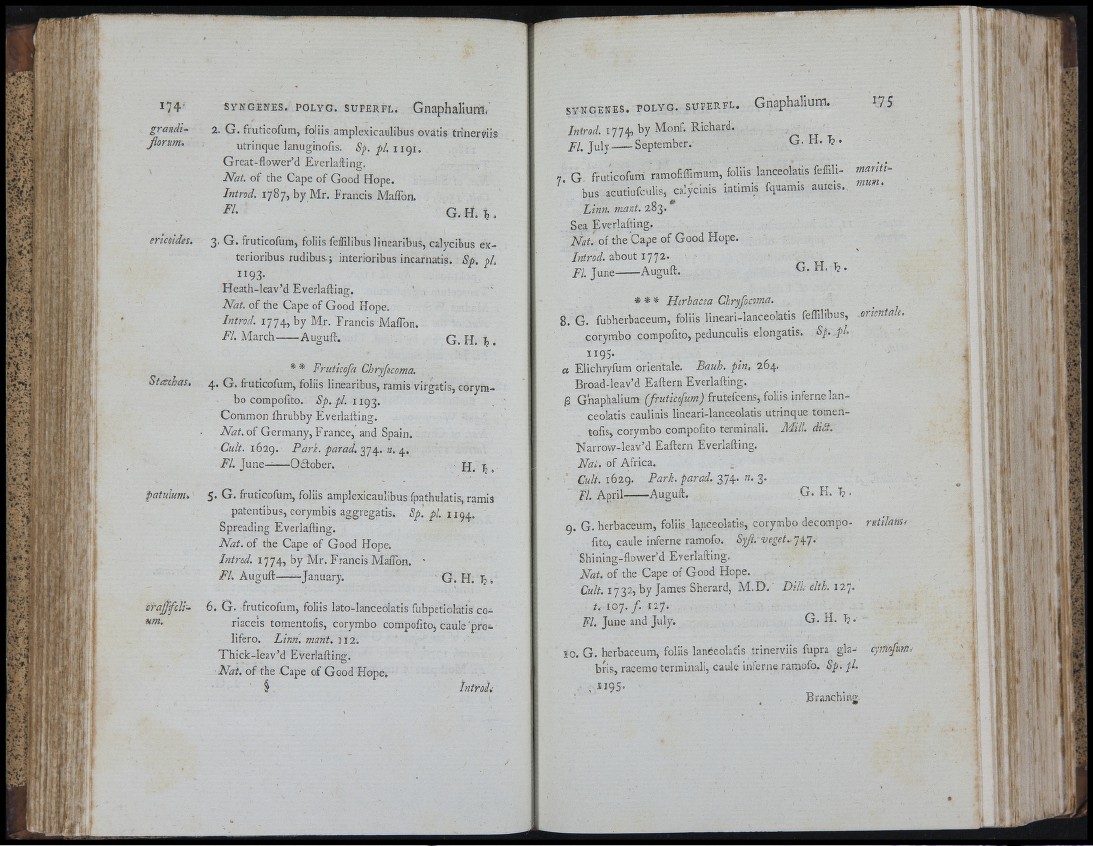 174 SYNGENES. POLYG. SUPERFL. Gnaphalium.
grandi- 2. G. fruticoſum, foliis amplexicaulibus ovatis trinerviis
florum. utrinque lanuginoſis. Sp. pl. 1191.
Great-flower'd Everlaſting.
Nat. of the Cape of Good Hope.
Introd. 1787, by Mr. Francis Maſſon.
Fl. G. H. ♄.
ericoides. 3. G. fruticoſum, foliis ſeſſilibus linearibus, calycibus ex-
terioribus rudibus; interioribus incarnatis. Sp. pl.
1193.
Heath-leav'd Everlaſting.
Nat. of the Cape of Good Hope.
Introd. 1774, by Mr. Francis Maſſon.
Fl. March——Auguſt. G. H. ♄.
** Fruticoſa Chryſocoma.
Stœchas. 4. G. fruticoſum, foliis linearibus, ramis virgatis, corym-
bo compoſito. Sp. pl. 1193.
Common ſhrubby Everlaſting.
Nat. of Germany, France, and Spain.
Cult. 1629. Park. parad. 374. n. 4.
Fl. June——October. H. ♄.
patulum. 5. G. fruticoſum, foliis amplexicaulibus ſpathulatis, ramis
patentibus, corymbis aggregatis. Sp. pl. 1194.
Spreading Everlaſting.
Nat. of the Cape of Good Hope.
Introd. 1774, by Mr. Francis Maſſon.
Fl. Auguſt——January. G. H. ♄.
craſſifoli- 6. G. fruticoſum, foliis lato-lanceolatis ſubpetiolatis co-
um. riaceis tomentoſis, corymbo compoſito, caule pro-
lifero. Linn. mant. 112.
Thick-leav'd Everlaſting.
Nat. of the Cape of Good Hope.
Introd.
SYNGENES. POLYG. SUPERFL. Gnaphalium. 175
Introd. 1774, by Monſ. Richard.
Fl. July——September. G. H. ♄.
7. G. fruticoſum ramoſiſſimum, foliis lanceolatis ſeſſili- mariti-
bus acutiuſculis, calycinis intimis ſquamis aureis. mum.
Linn. mant. 283.
Sea Everlaſting.
Nat. of the Cape of Good Hope.
Introd. about 1772.
Fl. June——Auguſt. G. H. ♄.
*** Herbacea Chryſocoma.
8. G. ſubherbaceum, foliis lineari-lanceolatis ſeſſilibus, orientale.
corymbo compoſito, pedunculis elongatis. Sp. pl.
1195.
α Elichryſum orientale. Bauh. pin. 264.
Broad-leav'd Eaſtern Everlaſting.
β Gnaphalium (fruticoſum) fruteſcens, foliis inferne lan-
ceolatis caulinis lineari-lanceolatis utrinque tomen-
toſis, corymbo compoſito terminali. Mill. dict.
Narrow-leav'd Eaſtern Everlaſting.
Nat. of Africa.
Cult. 1629. Park. parad. 374. n. 3.
Fl. April——Auguſt. G. H. ♄.
9. G. herbaceum, foliis lanceolatis, corymbo decompo- rutilans.
ſito, caule inferne ramoſo. Syſt. veget. 747.
Shining-flower'd Everlaſting.
Nat. of the Cape of Good Hope.
Cult. 1732, by James Sherard, M.D. Dill. elth. 127.
t. 107. f. 127.
Fl. June and July. G. H. ♄.
10. G. herbaceum, foliis lanceolatis trinerviis ſupra gla- cymoſum.
bris, racemo terminali, caule inferne ramoſo. Sp. pl.
1195.
Branching